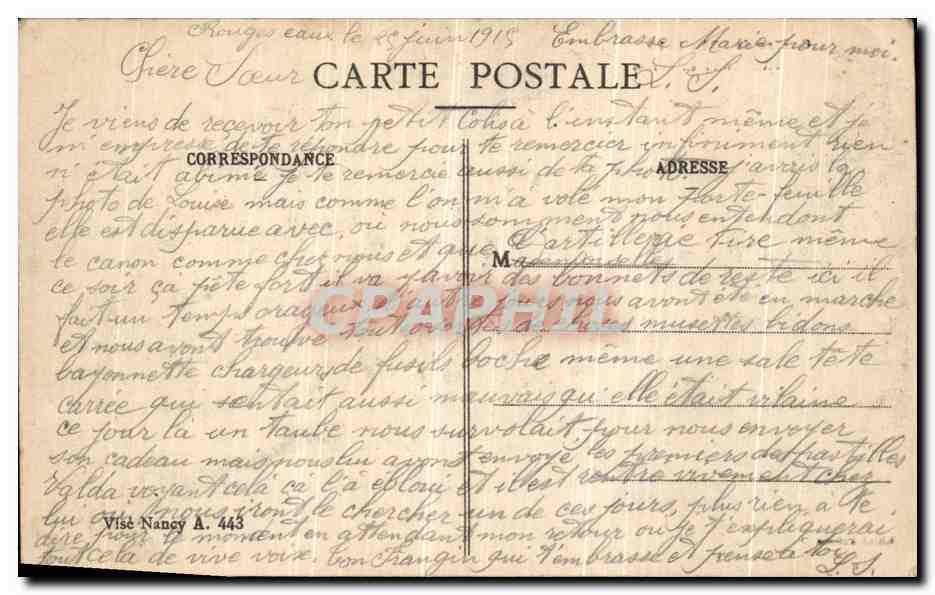 Rouges eaux le 25 juin 1915 Embrasse Marie pour moi.
Chère Sœur L. S.
CARTE POSTALE
Je viens de recevoir ton petit Colis à l'instant même et je
m'empresse de te répondre pour te remercier infiniment, rien
CORRESPONDANCE
ADRESSE
n'était abimé je te remercie aussi de ta photo. J'avais la
photo de Louise mais comme l'on m'a volé mon porte-feuille
elle est disparue avec, où nous sommes nous entendont
le canon comme chez nous et que L'artillerie tire même
M
ce soir ça pète fort il va y avoir des bonnets de reste ici il
fait un temps orageux nous avont été en marche
CPAPHIL
et nous avont trouvé des musettes bidons
bayonnette chargeurs de fusils boche même une sale tête
carrée qui sentait aussi mauvais qu'elle était vilaine
ce jour là un taube nous survolait pour nous envoyer
son cadeau mais nous lui avont envoyé les premiers des pastilles
Valda voyant celà ça l'a ebloui et il est rentré vivement chez
lui où nous iront le chercher un de ces jours, plus rien à te
Visé Nancy A. 443
dire pour le moment en attendant mon retour où je t'expliquerai
tout cela de vive voix. Ton Frangin qui t'embrasse et pense à toi
L. S.